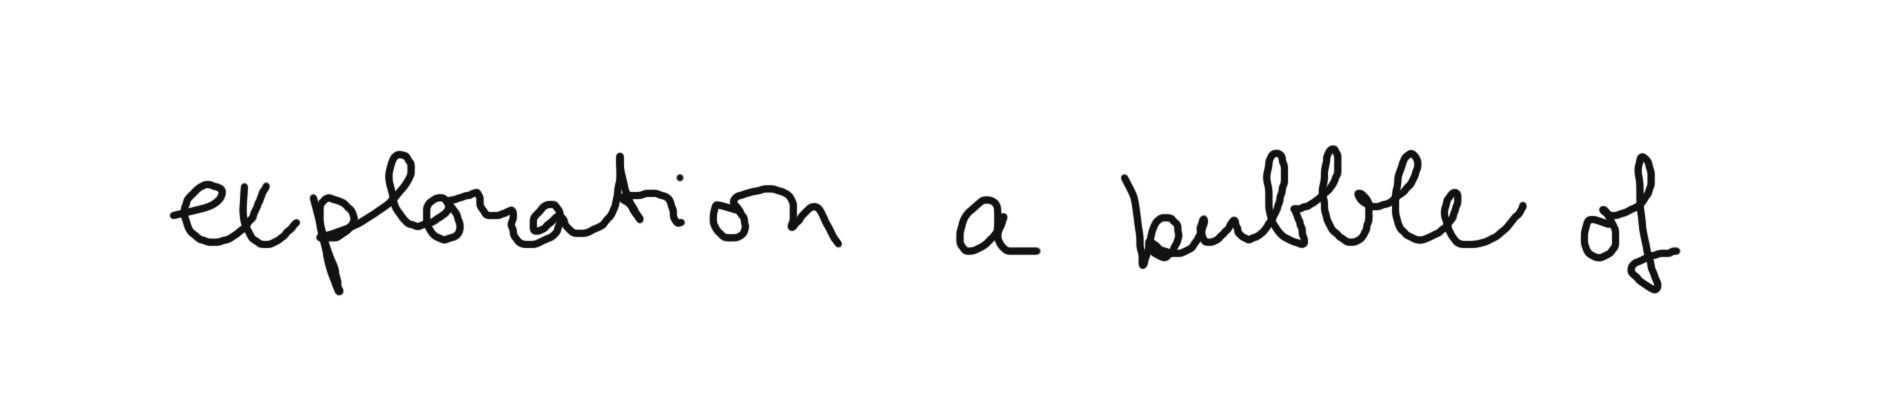 exploration a bubble of